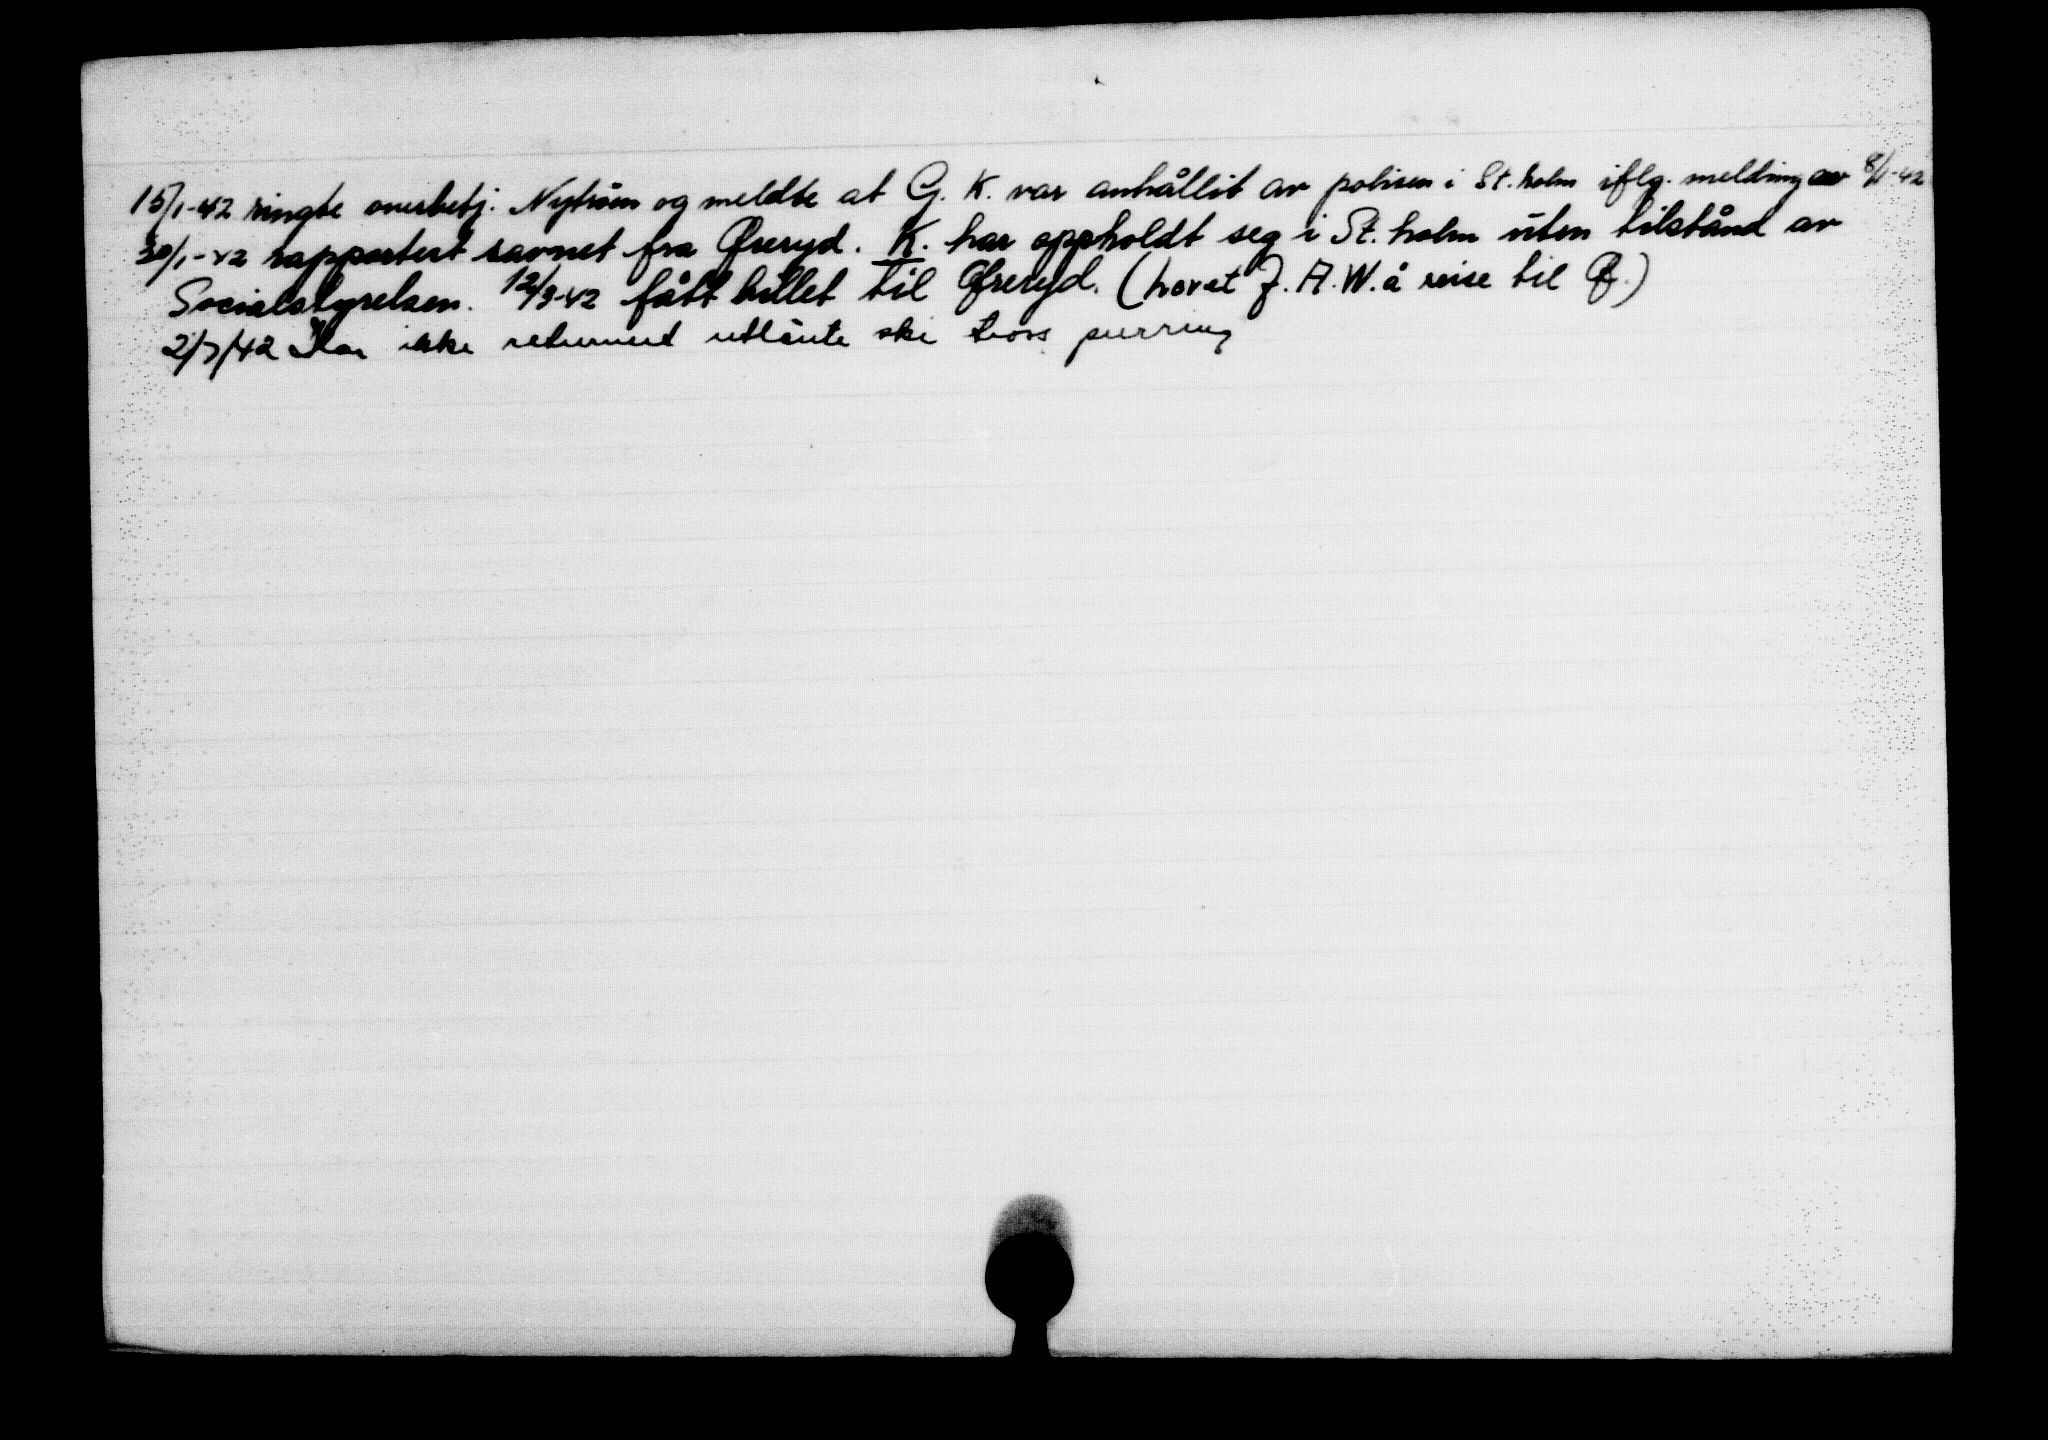 15/1-42 ringte overbetj. Nyström og meldte at G. K. var anhållit av polisen i St. holm iflg. melding av 8/1-42
30/1-42 rapportert savnet fra Öreryd. K. har oppholdt seg i St. holm uten tilstånd av
Socialstyrelsen. 12/3-42 fått billet til Öreryd. (lovet J. A. W. å reise til Ö.)
2/7/42 Har ikke returnert utlånte ski tross purring